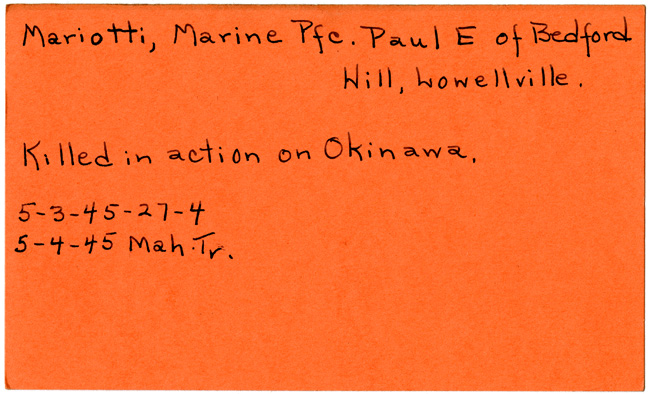 Mariotti, Marine Pfc. Paul E of Bedford
Hill, Lowellville.
Killed in action on Okinawa.
5-3-45-27-4
5-4-45 Mah.Tr.